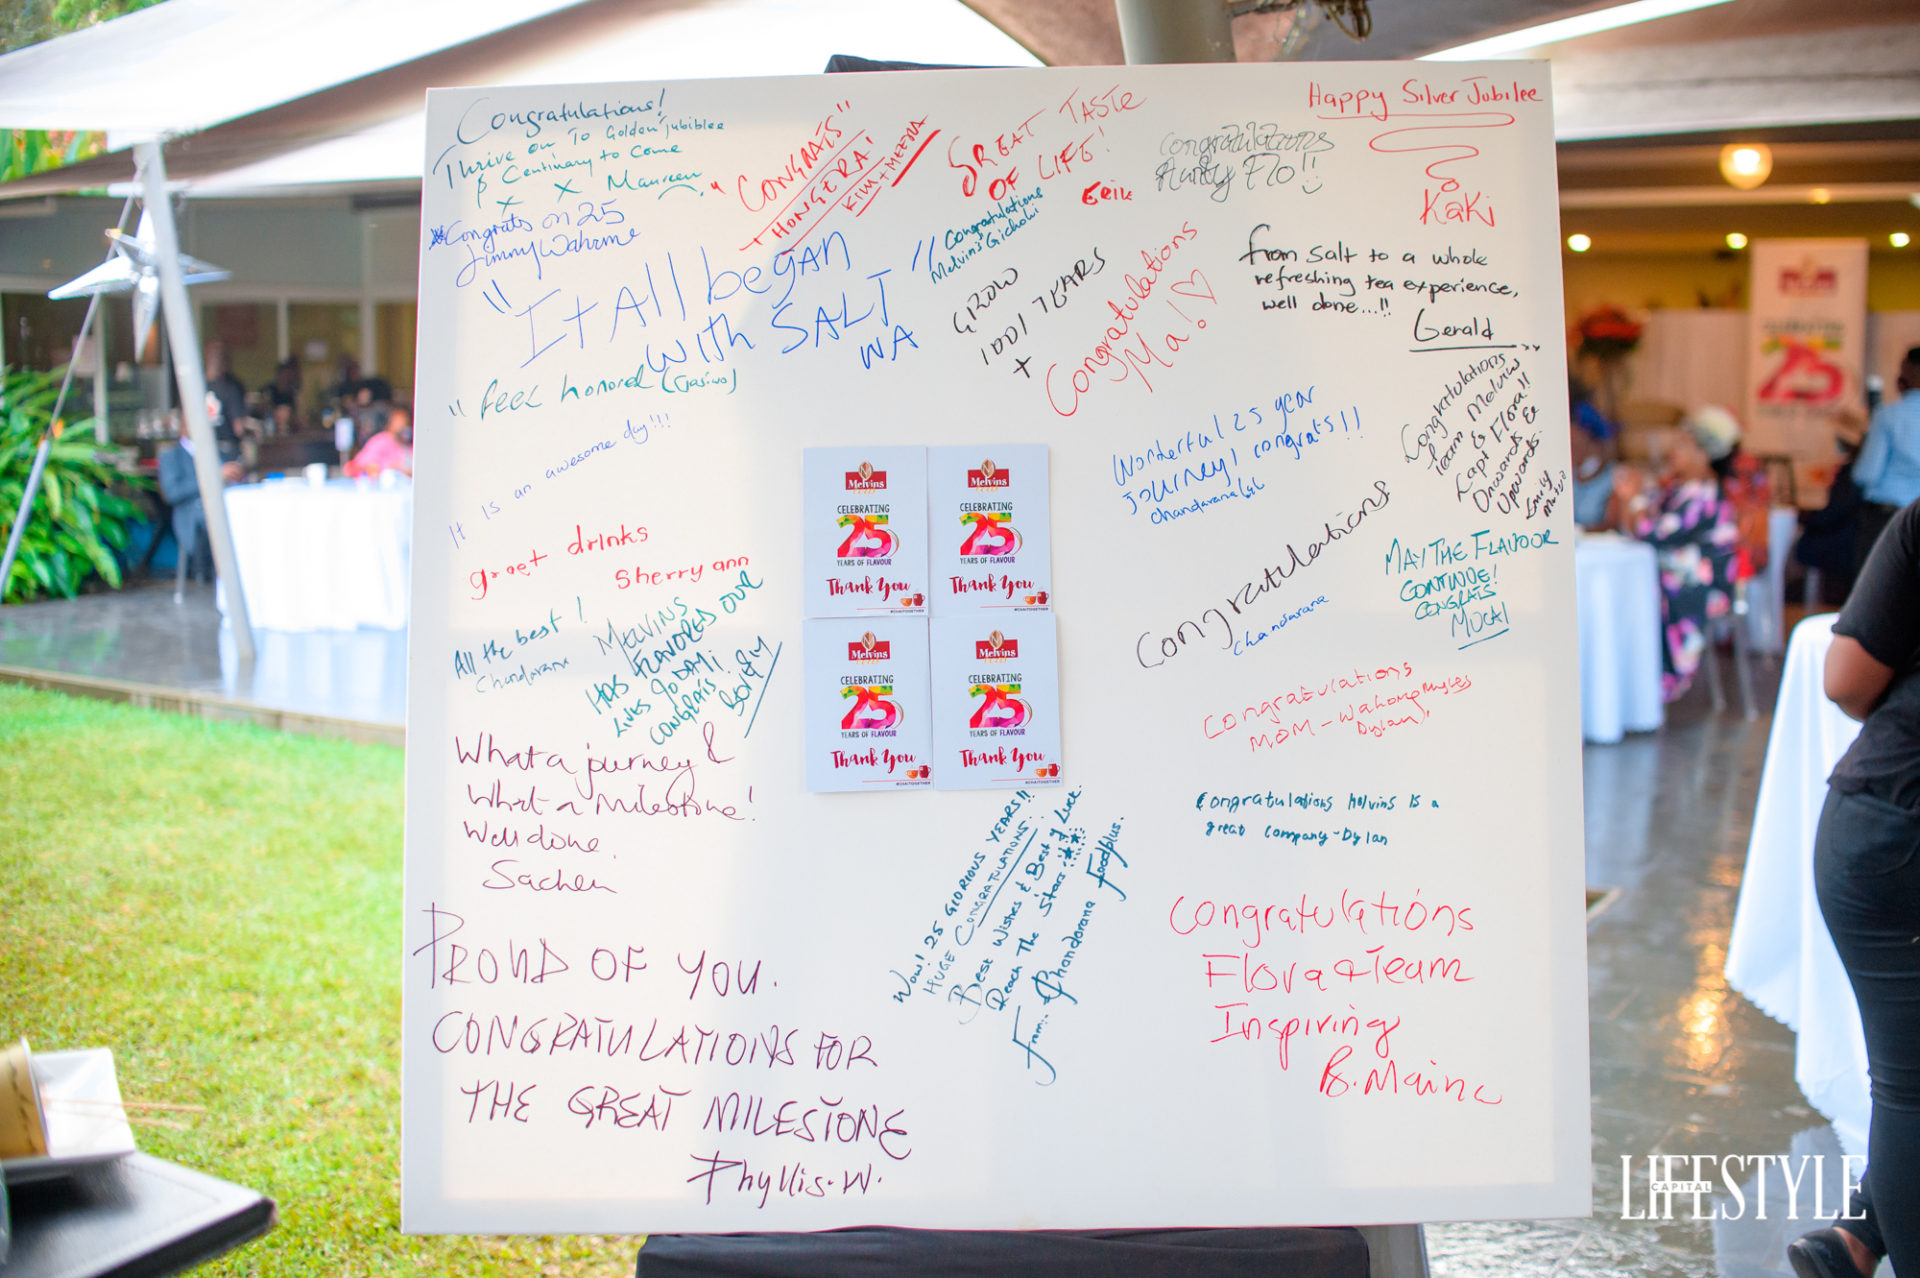 Congratulations!
Thrive on To Golden Jubiblee
& Centinary to Come
x x Maureen
Congrats on 25
Jimmy
"CONGRATS"
+ HONGERA!
KIM + MEENA
GREAT TASTE
OF LIFE!
Erik
Congratulations
Aunty Flo!!
Happy Silver Jubilee
KaKi
"It All began
with SALT"
WA
Congratulations
Melvins Gichohi
GROW
1001 YEARS
+
Congratulations
Ma!
from Salt to a whole
refreshing tea experience,
well done...!!
Gerald
"feel honored
It is an awesome day!!!
Wonderful 25 year
journey! congrats!!
Chandarana
Congratulations
Team Melvins
& Flora!!
Onwards &
Upwards.
Emily
great drinks
Sherry ann
Congratulations
Chandarana
MAY THE FLAVOUR
CONTINUE!
CONGRATS
All the best!
Chandarana
MELVINS
HAS FLAVORED OUR
LIVES TODAY!
CONGRATS!
What a journey &
What a milestone!
Well done
Sachen
Melvins
CELEBRATING
25
YEARS OF FLAVOUR
Thank You
#CHAITOGETHER
Melvins
CELEBRATING
25
YEARS OF FLAVOUR
Thank You
#CHAITOGETHER
Melvins
CELEBRATING
25
YEARS OF FLAVOUR
Thank You
#CHAITOGETHER
Melvins
CELEBRATING
25
YEARS OF FLAVOUR
Thank You
#CHAITOGETHER
Congratulations
MOM - Wahome Myles
Dylan
Congratulations Melvins Is a
great company-Dylan
Wow! 25 GLORIOUS YEARS!!
HUGE CONGRATULATIONS.
Best Wishes & Best of Luck.
Reach The Stars
From:- Chandarana Foodplus.
PROUD OF YOU.
CONGRATULATIONS FOR
THE GREAT MILESTONE
Phyllis.W.
Congratulations
Flora & Team
Inspiring
B. Maina
25
CAPITAL
LIFESTYLE